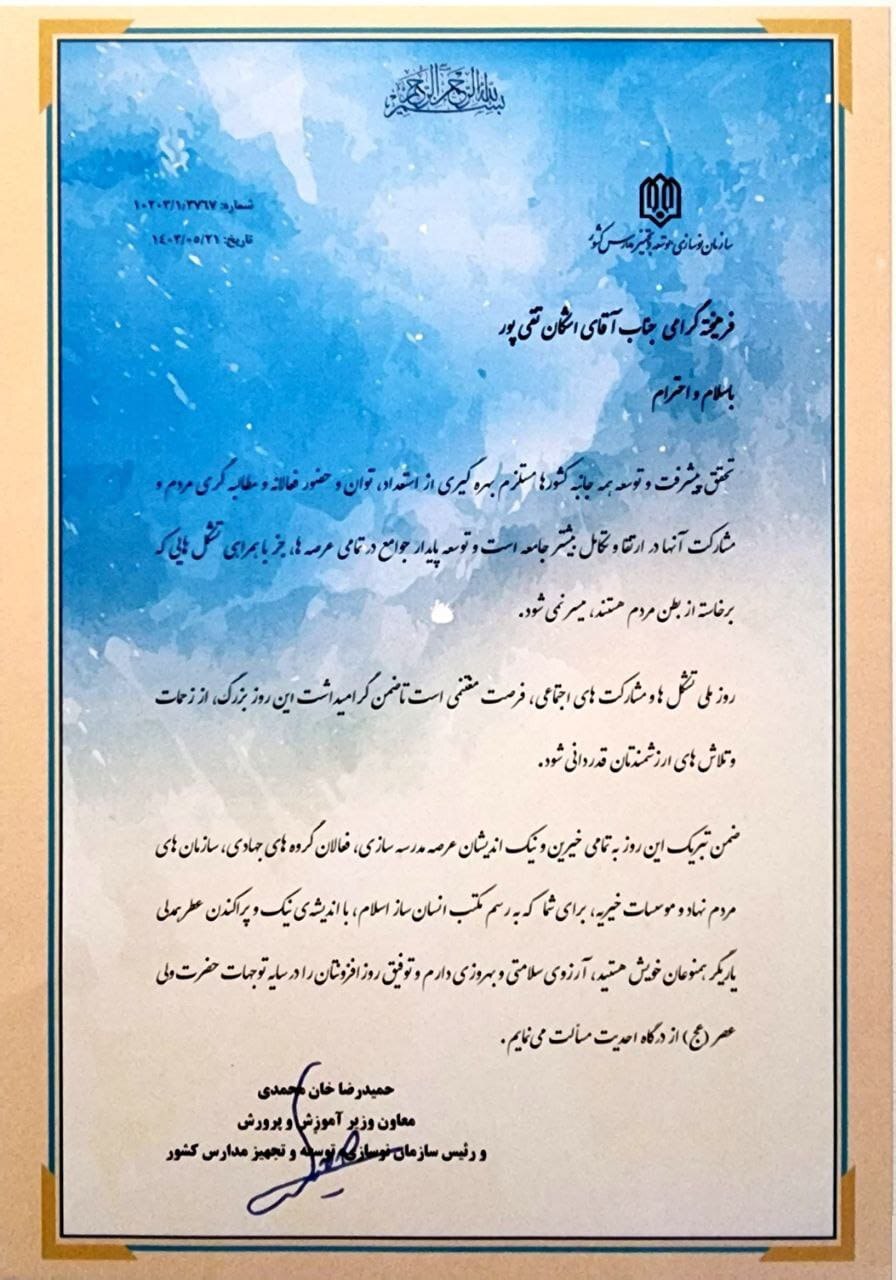 بسم الله الرحمن الرحیم
سازمان نوسازی، توسعه و تجهیز مدارس کشور
شماره: ۱۰۲۰۳/۱/۳۷۶۷
تاریخ: ۱۴۰۳/۰۵/۲۱
فرهیخته گرامی جناب آقای اشکان تقی پور
باسلام و احترام
تحقق پیشرفت و توسعه همه جانبه کشورها مستلزم بهره گیری از استعداد، توان و حضور فعالانه و مطالبه گری مردم و
مشارکت آنها در ارتقا و تکامل بیشتر جامعه است و توسعه پایدار جوامع در تمامی عرصه ها، جز با همراهی تشکل هایی که
برخاسته از بطن مردم هستند، میسر نمی شود.
روز ملی تشکل ها و مشارکت های اجتماعی، فرصت مغتنمی است تا ضمن گرامیداشت این روز بزرگ، از زحمات
و تلاش های ارزشمندتان قدردانی شود.
ضمن تبریک این روز به تمامی خیرین و نیک اندیشان عرصه مدرسه سازی، فعالان گروه های جهادی، سازمان های
مردم نهاد و موسسات خیریه، برای شما که به رسم مکتب انسان ساز اسلام، با اندیشه‌ی نیک و پراکندن عطر همدلی
یاریگر همنوعان خویش هستید، آرزوی سلامتی و بهروزی دارم و توفیق روز افزونتان را در سایه توجهات حضرت ولی
عصر (عج) از درگاه احدیت مسألت می نمایم.
حمیدرضا خان محمدی
معاون وزیر آموزش و پرورش
و رئیس سازمان نوسازی، توسعه و تجهیز مدارس کشور